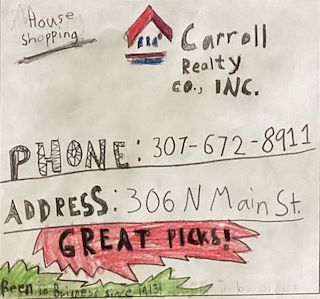 House
Shopping
Carroll
Realty
CO., INC.
PHONE: 307-672-8911
ADDRESS: 306 N Main St.
GREAT PICKS!
Been in Buisness since 1913!